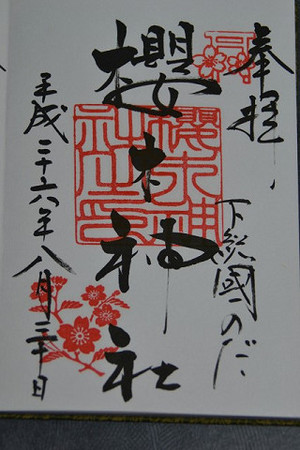 奉拝
下総國のだ
櫻木神社
平成二十六年八月三十日
櫻木神社之印